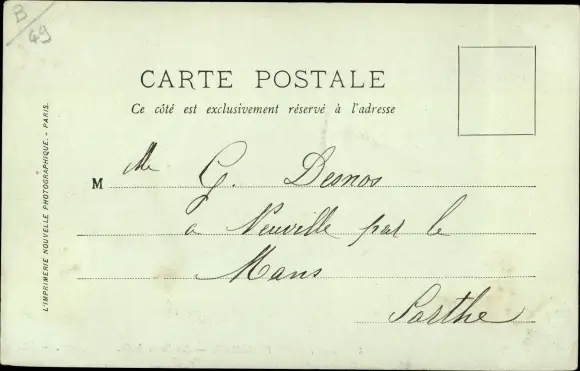 B/49
CARTE POSTALE
Ce côté est exclusivement réservé à l'adresse
M Me G. Desnos
a Neuville par le
Mans
Sarthe
L'IMPRIMERIE NOUVELLE PHOTOGRAPHIQUE. - PARIS.